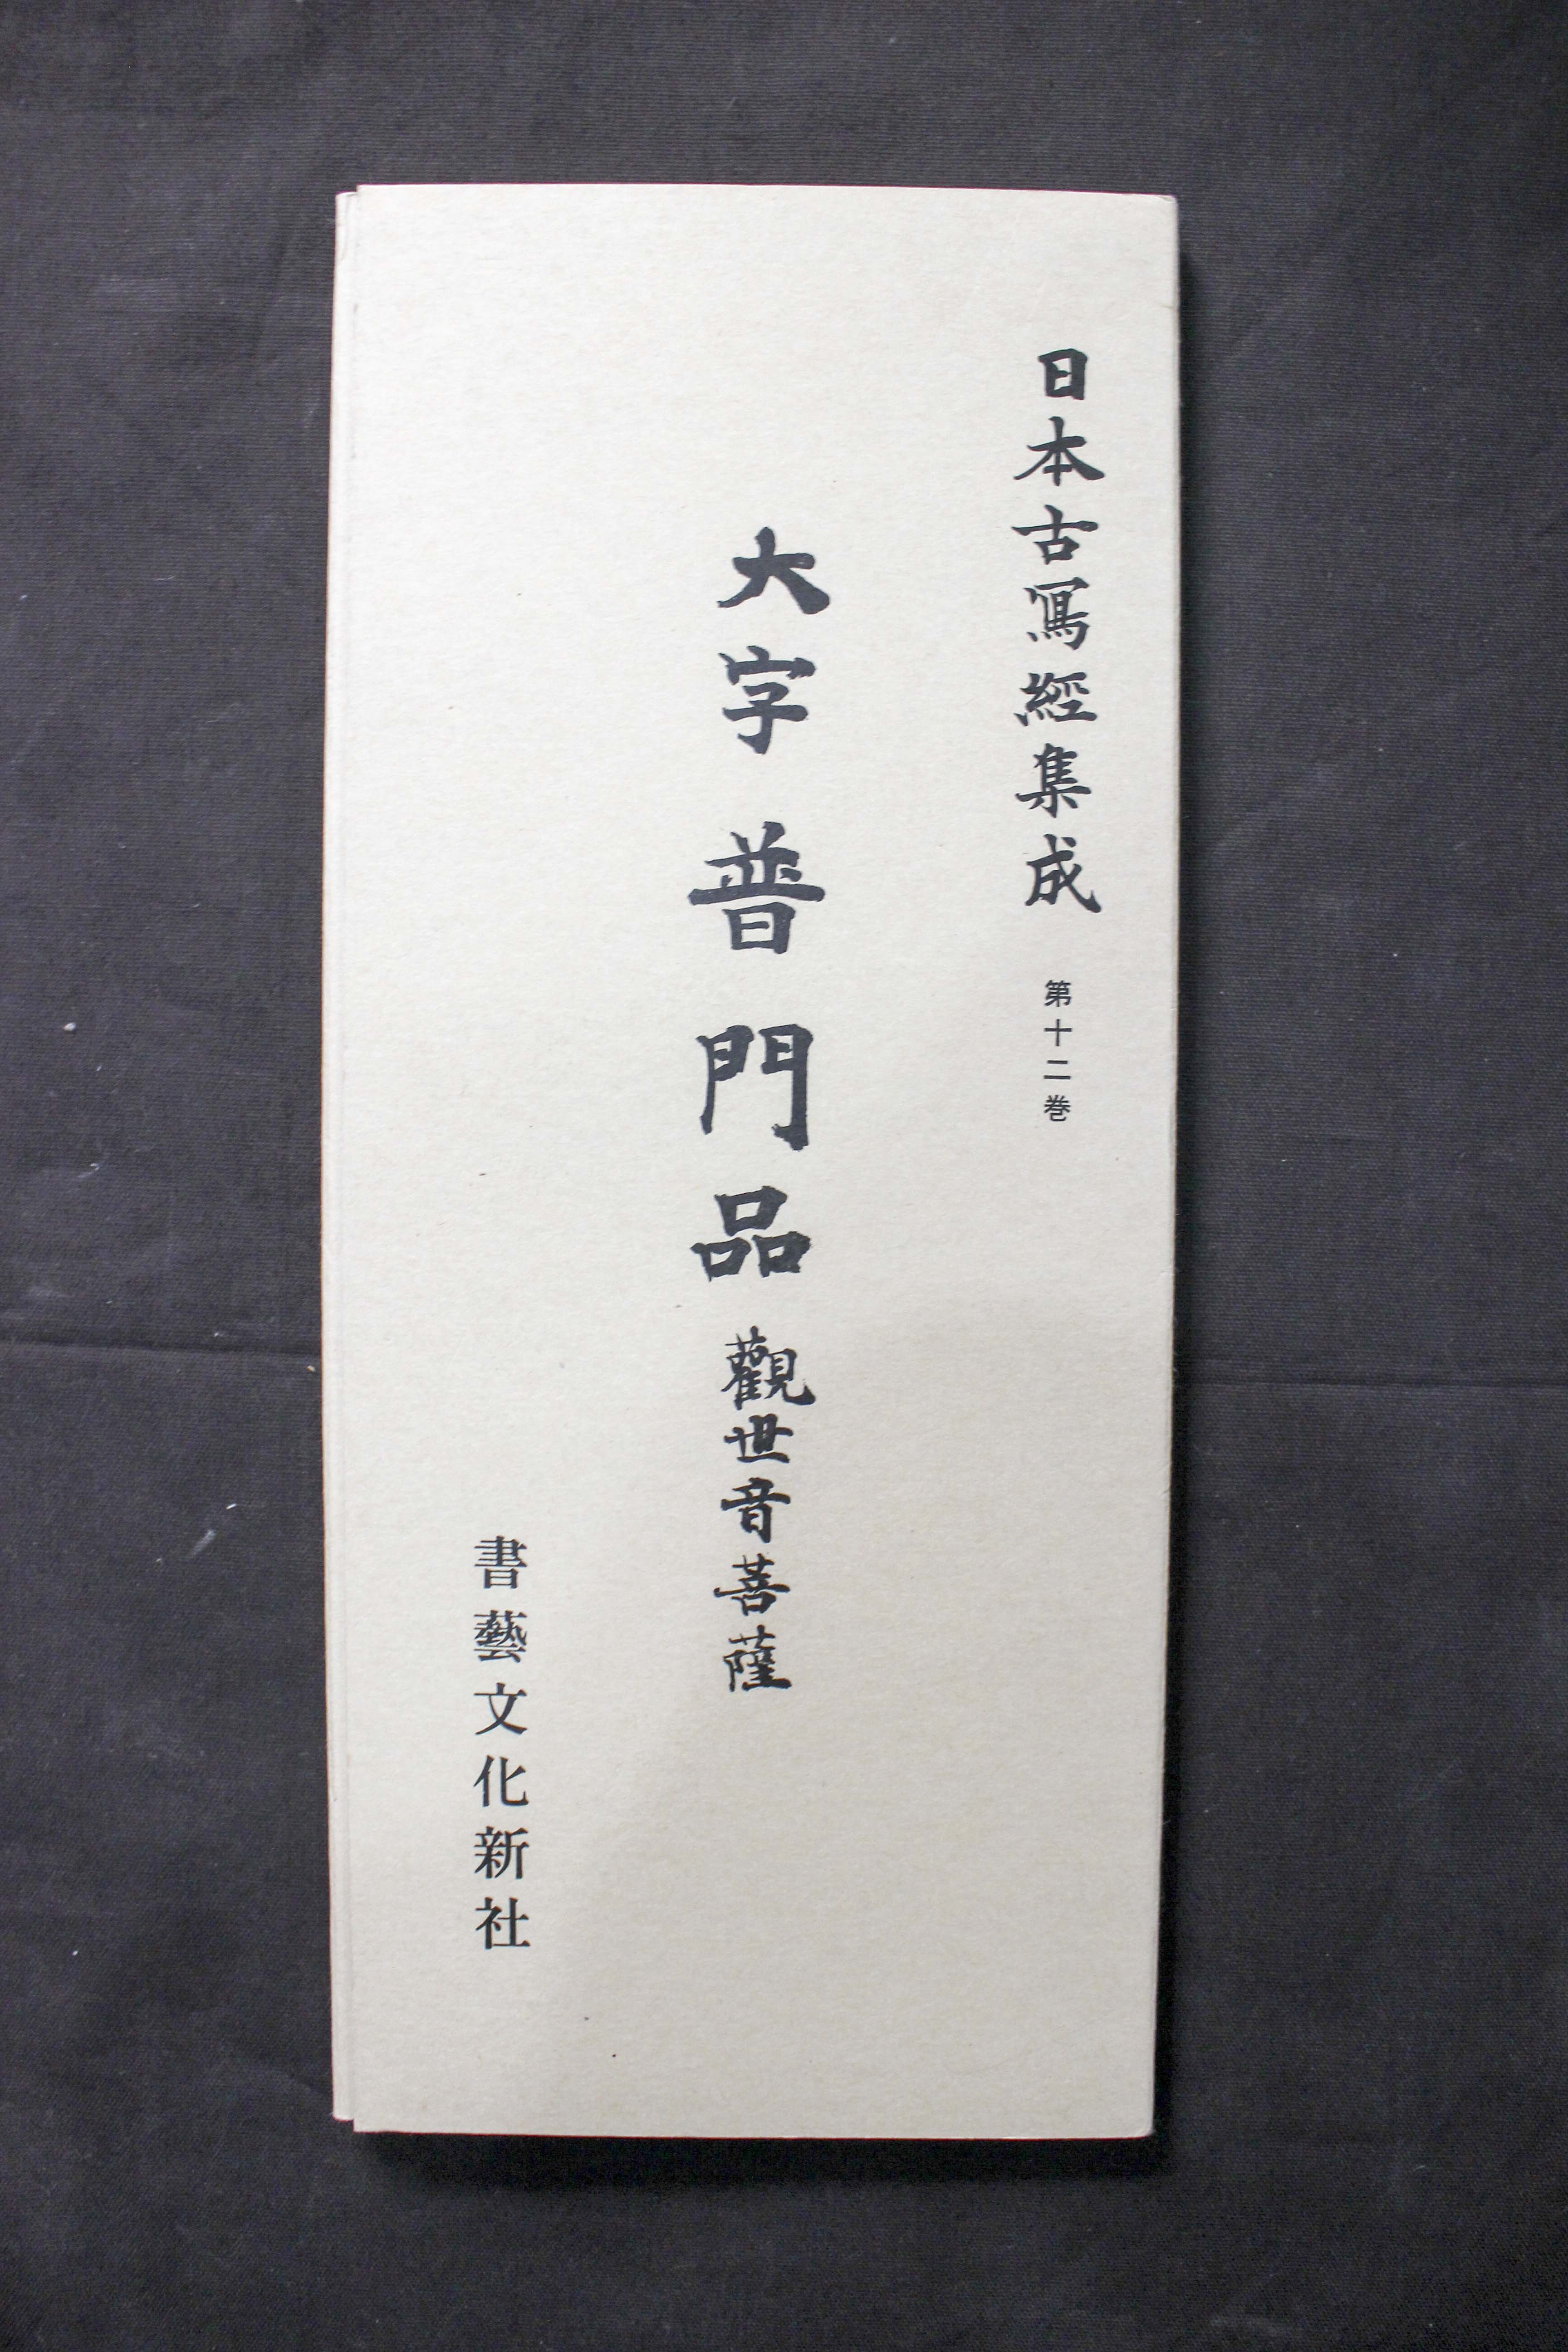 日本古寫經集成 第十二巻
大字普門品 觀世音菩薩
書藝文化新社